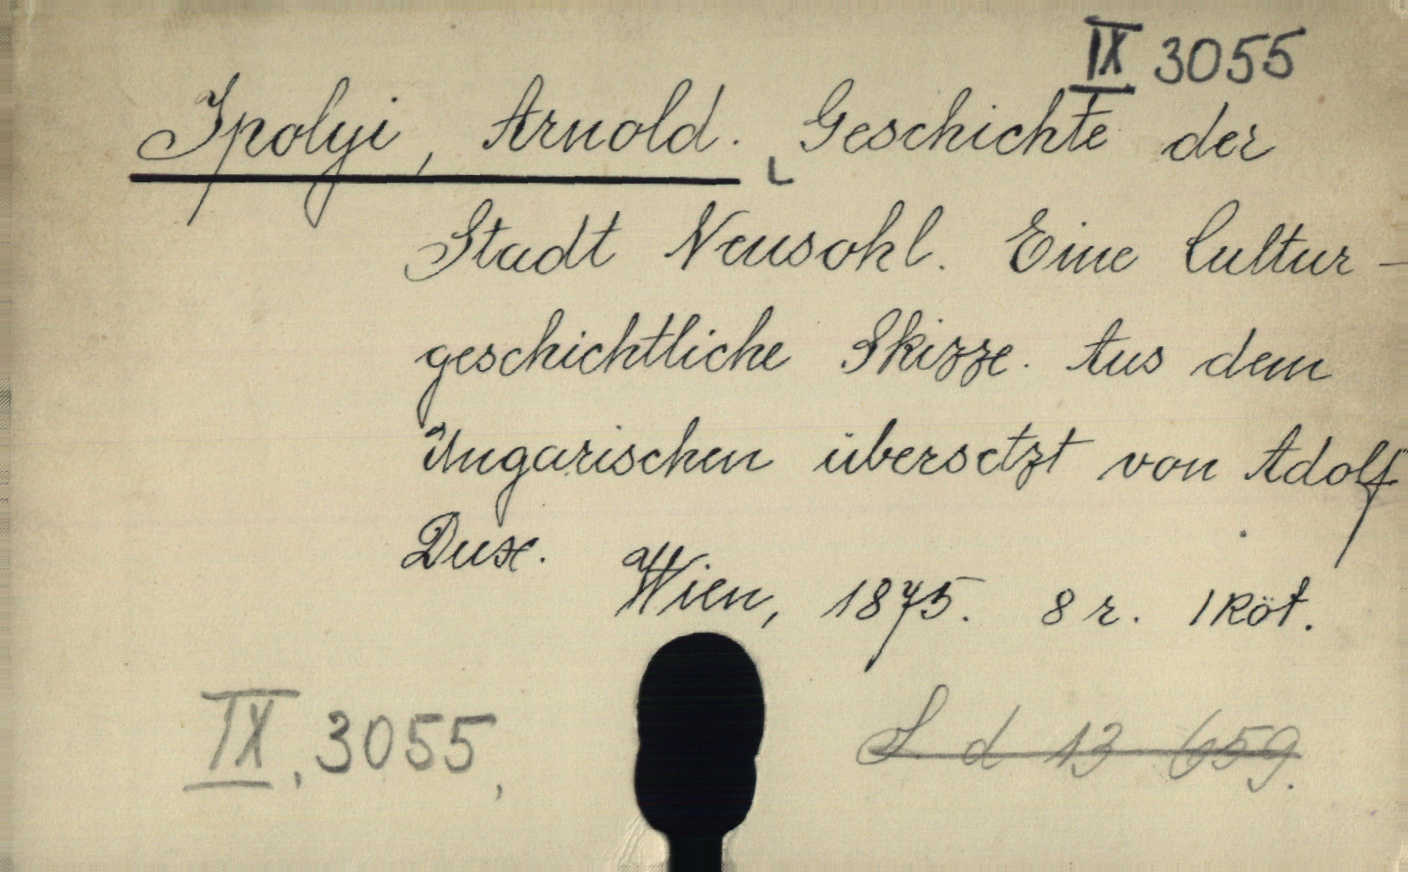 IX 3055
Ipolyi, Arnold. Geschichte der
Stadt Neusohl. Eine Cultur-
geschichtliche Skizze. Aus dem
Ungarischen übersetzt von Adolf
Dux.
Wien, 1875. 8 r. 1 köt.
IX, 3055,
L d 13 659.